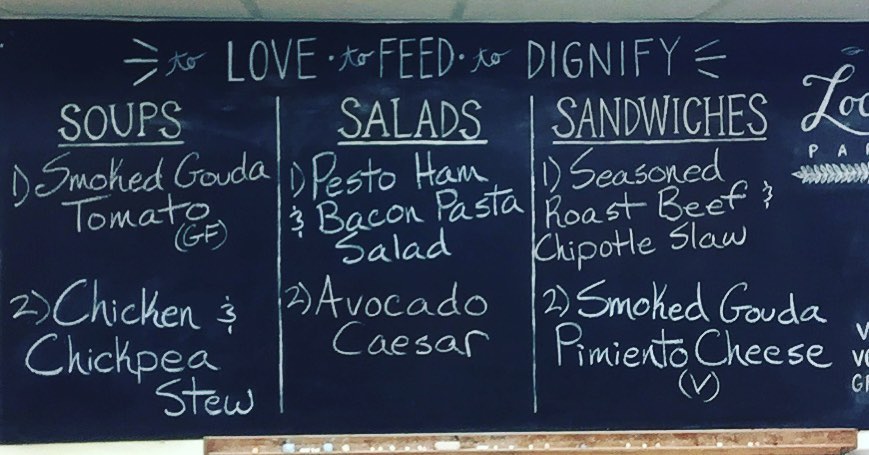 to LOVE · to FEED · to DIGNIFY
SOUPS
1) Smoked Gouda
Tomato
(GF)
2) Chicken &
Chickpea
Stew
SALADS
1) Pesto Ham
& Bacon Pasta
Salad
2) Avocado
Caesar
SANDWICHES
1) Seasoned
Roast Beef &
Chipotle Slaw
2) Smoked Gouda
Pimiento Cheese
(V)